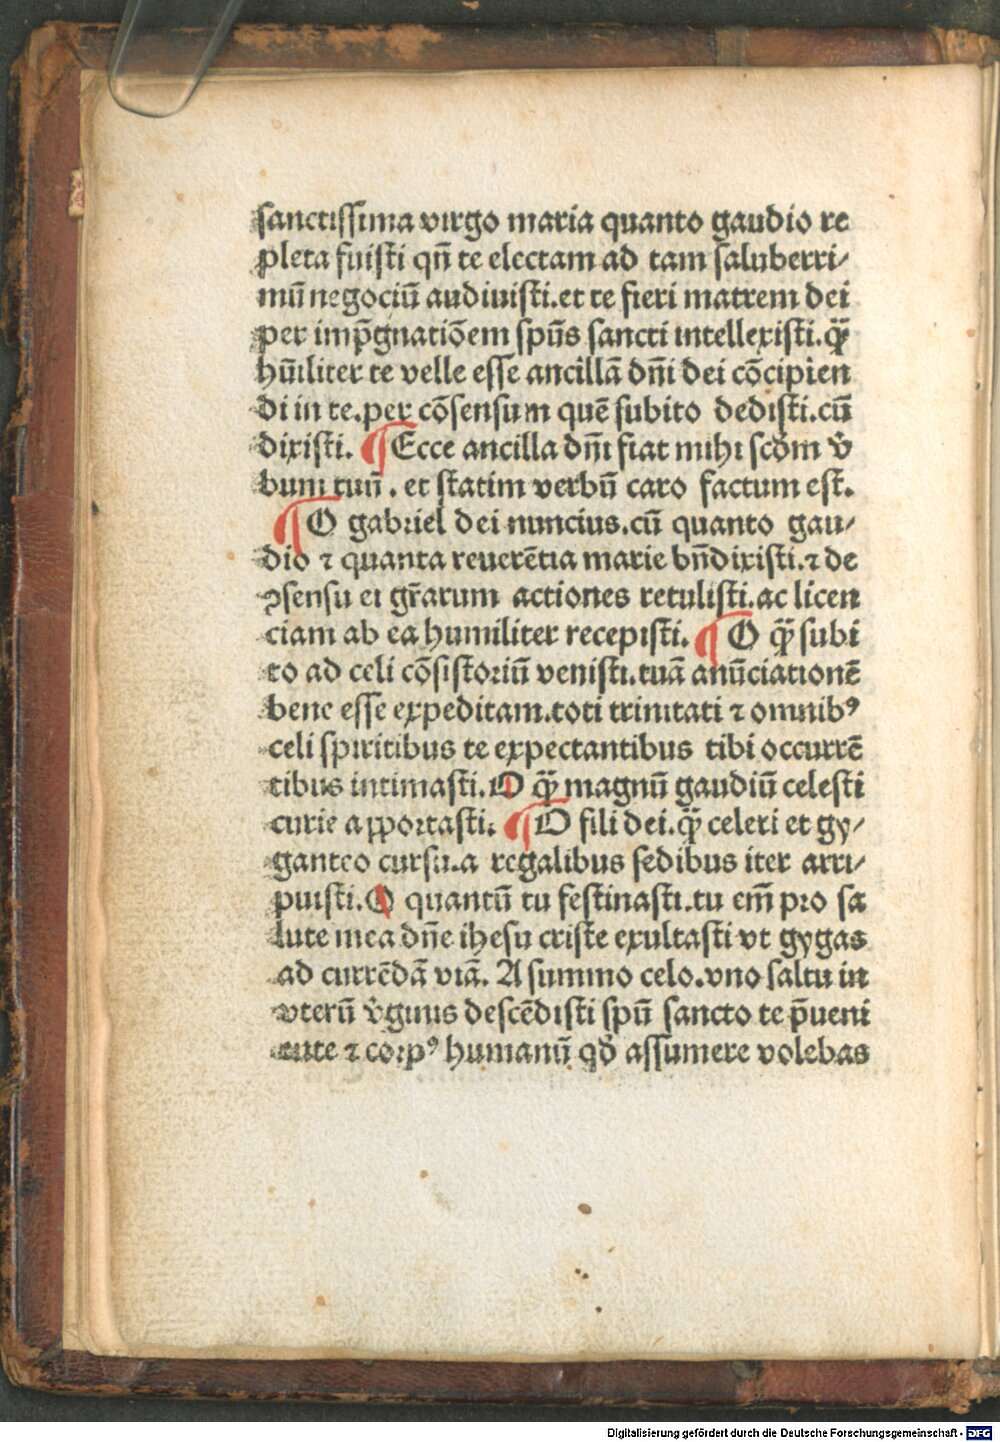 sanctissima virgo maria quanto gaudio re
pleta fuisti qñ te electam ad tam saluberri/
mū negociū audiuisti.et te fieri matrem dei
per imp̄gnatiōem spūs sancti intellexisti.q̄
hūiliter te velle esse ancillā dn̄i dei cōcipien
di in te.per cōsensum quē subito dedisti.cū
dixisti. ¶ Ecce ancilla dn̄i fiat mihi scd̄m v̄
bum tuū . et statim verbū caro factum est.
¶ O gabriel dei nuncius.cū quanto gau/
dio ⁊ quanta reuerētia marie bn̄dixisti.⁊ de
ꝯsensu ei gr̄arum actiones retulisti.ac licen
ciam ab ea humiliter recepisti. ¶ O q̄ subi
to ad celi cōsistoriū venisti.tuā anūciationē
bene esse expeditam.toti trinitati ⁊ omnibꝰ
celi spiritibus te expectantibus tibi occurrē
tibus intimasti.O q̄ magnū gaudiū celesti
curie apportasti. ¶ O fili dei.q̄ celeri et gy/
ganteo cursu.a regalibus sedibus iter arri/
puisti.O quantū tu festinasti.tu em̄ pro sa
lute mea dn̄e ihesu criste exultasti vt gygas
ad currēdā viā. A summo celo.vno saltu in
vterū v̄ginis descēdisti spū sancto te p̄ueni
ente ⁊ corpꝰ humanū qd̄ assumere volebas
Digitalisierung gefördert durch die Deutsche Forschungsgemeinschaft - DFG